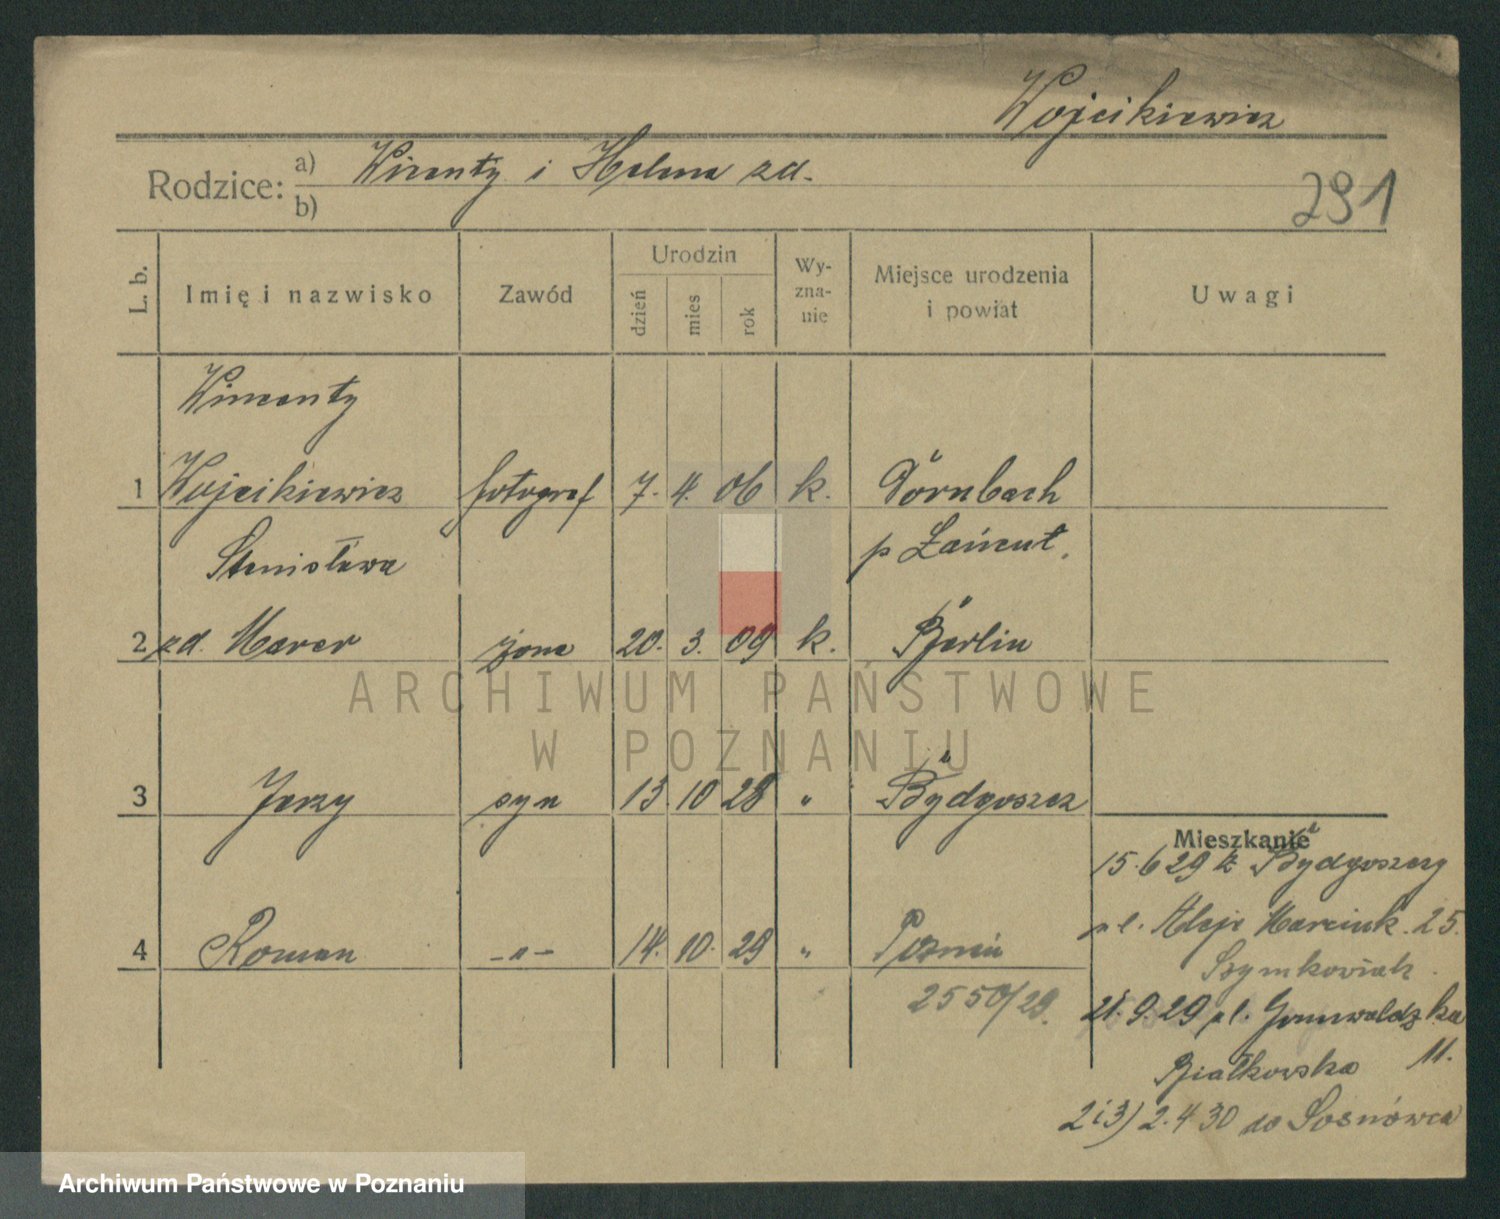 Wojcikiewicz
Rodzice: a) Wincenty i Helena zd.
b)
291
L. b.
Imię i nazwisko
Zawód
Urodzin
dzień
mies
rok
Wy-
zna-
nie
Miejsce urodzenia
i powiat
Uwagi
Wincenty
1 Wojcikiewicz fotograf 7. 4. 06 k. Dornbach
p Łańcut.
Stanisława
2 zd. Marer żona 20. 3. 09 k. Berlin
ARCHIWUM PAŃSTWOWE
W POZNANIU
3 Jerzy syn 13. 10 28 " Bydgoszcz
Mieszkanie
15.6 29 z Bydgoszczy
Aleje Marcink. 25.
Szymkowiak.
4 Roman -"- 14. 10. 29 " Poznań
2550/29.
21.9.29 Grunwaldzka
11.
Białkowska
2i3) 2.4 30 do Sosnowca
Archiwum Państwowe w Poznaniu